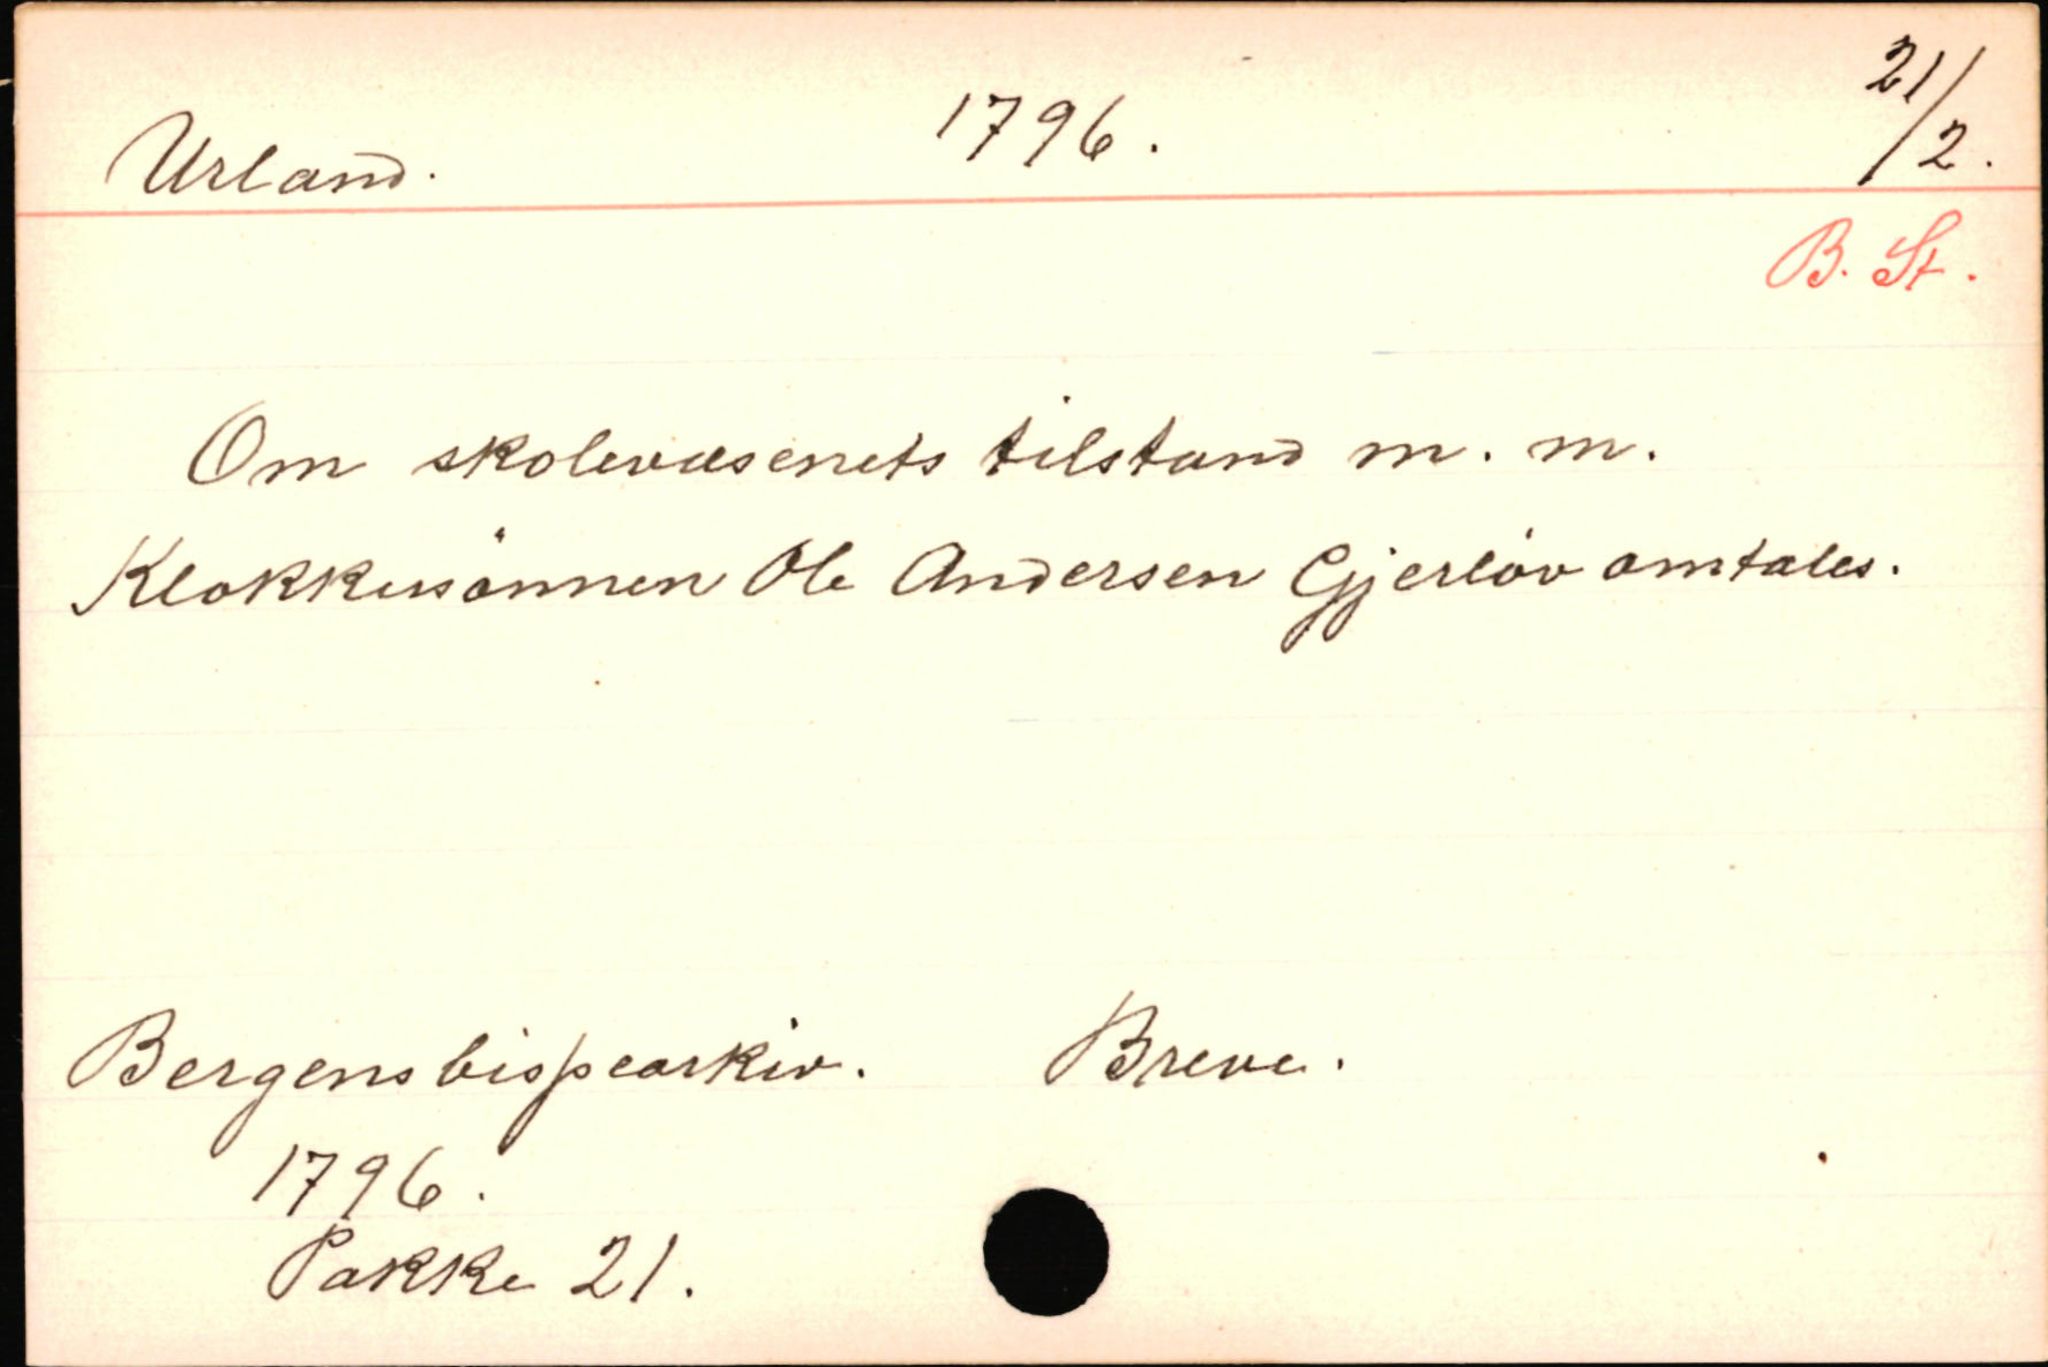 Urland. 1796. 21/2.
B. St.
Om skolevæsenets tilstand m. m.
Klokkersönnen Ole Andersen Gjerlöv omtales.
Bergens bispearkiv. Breve.
1796.
Pakke 21.